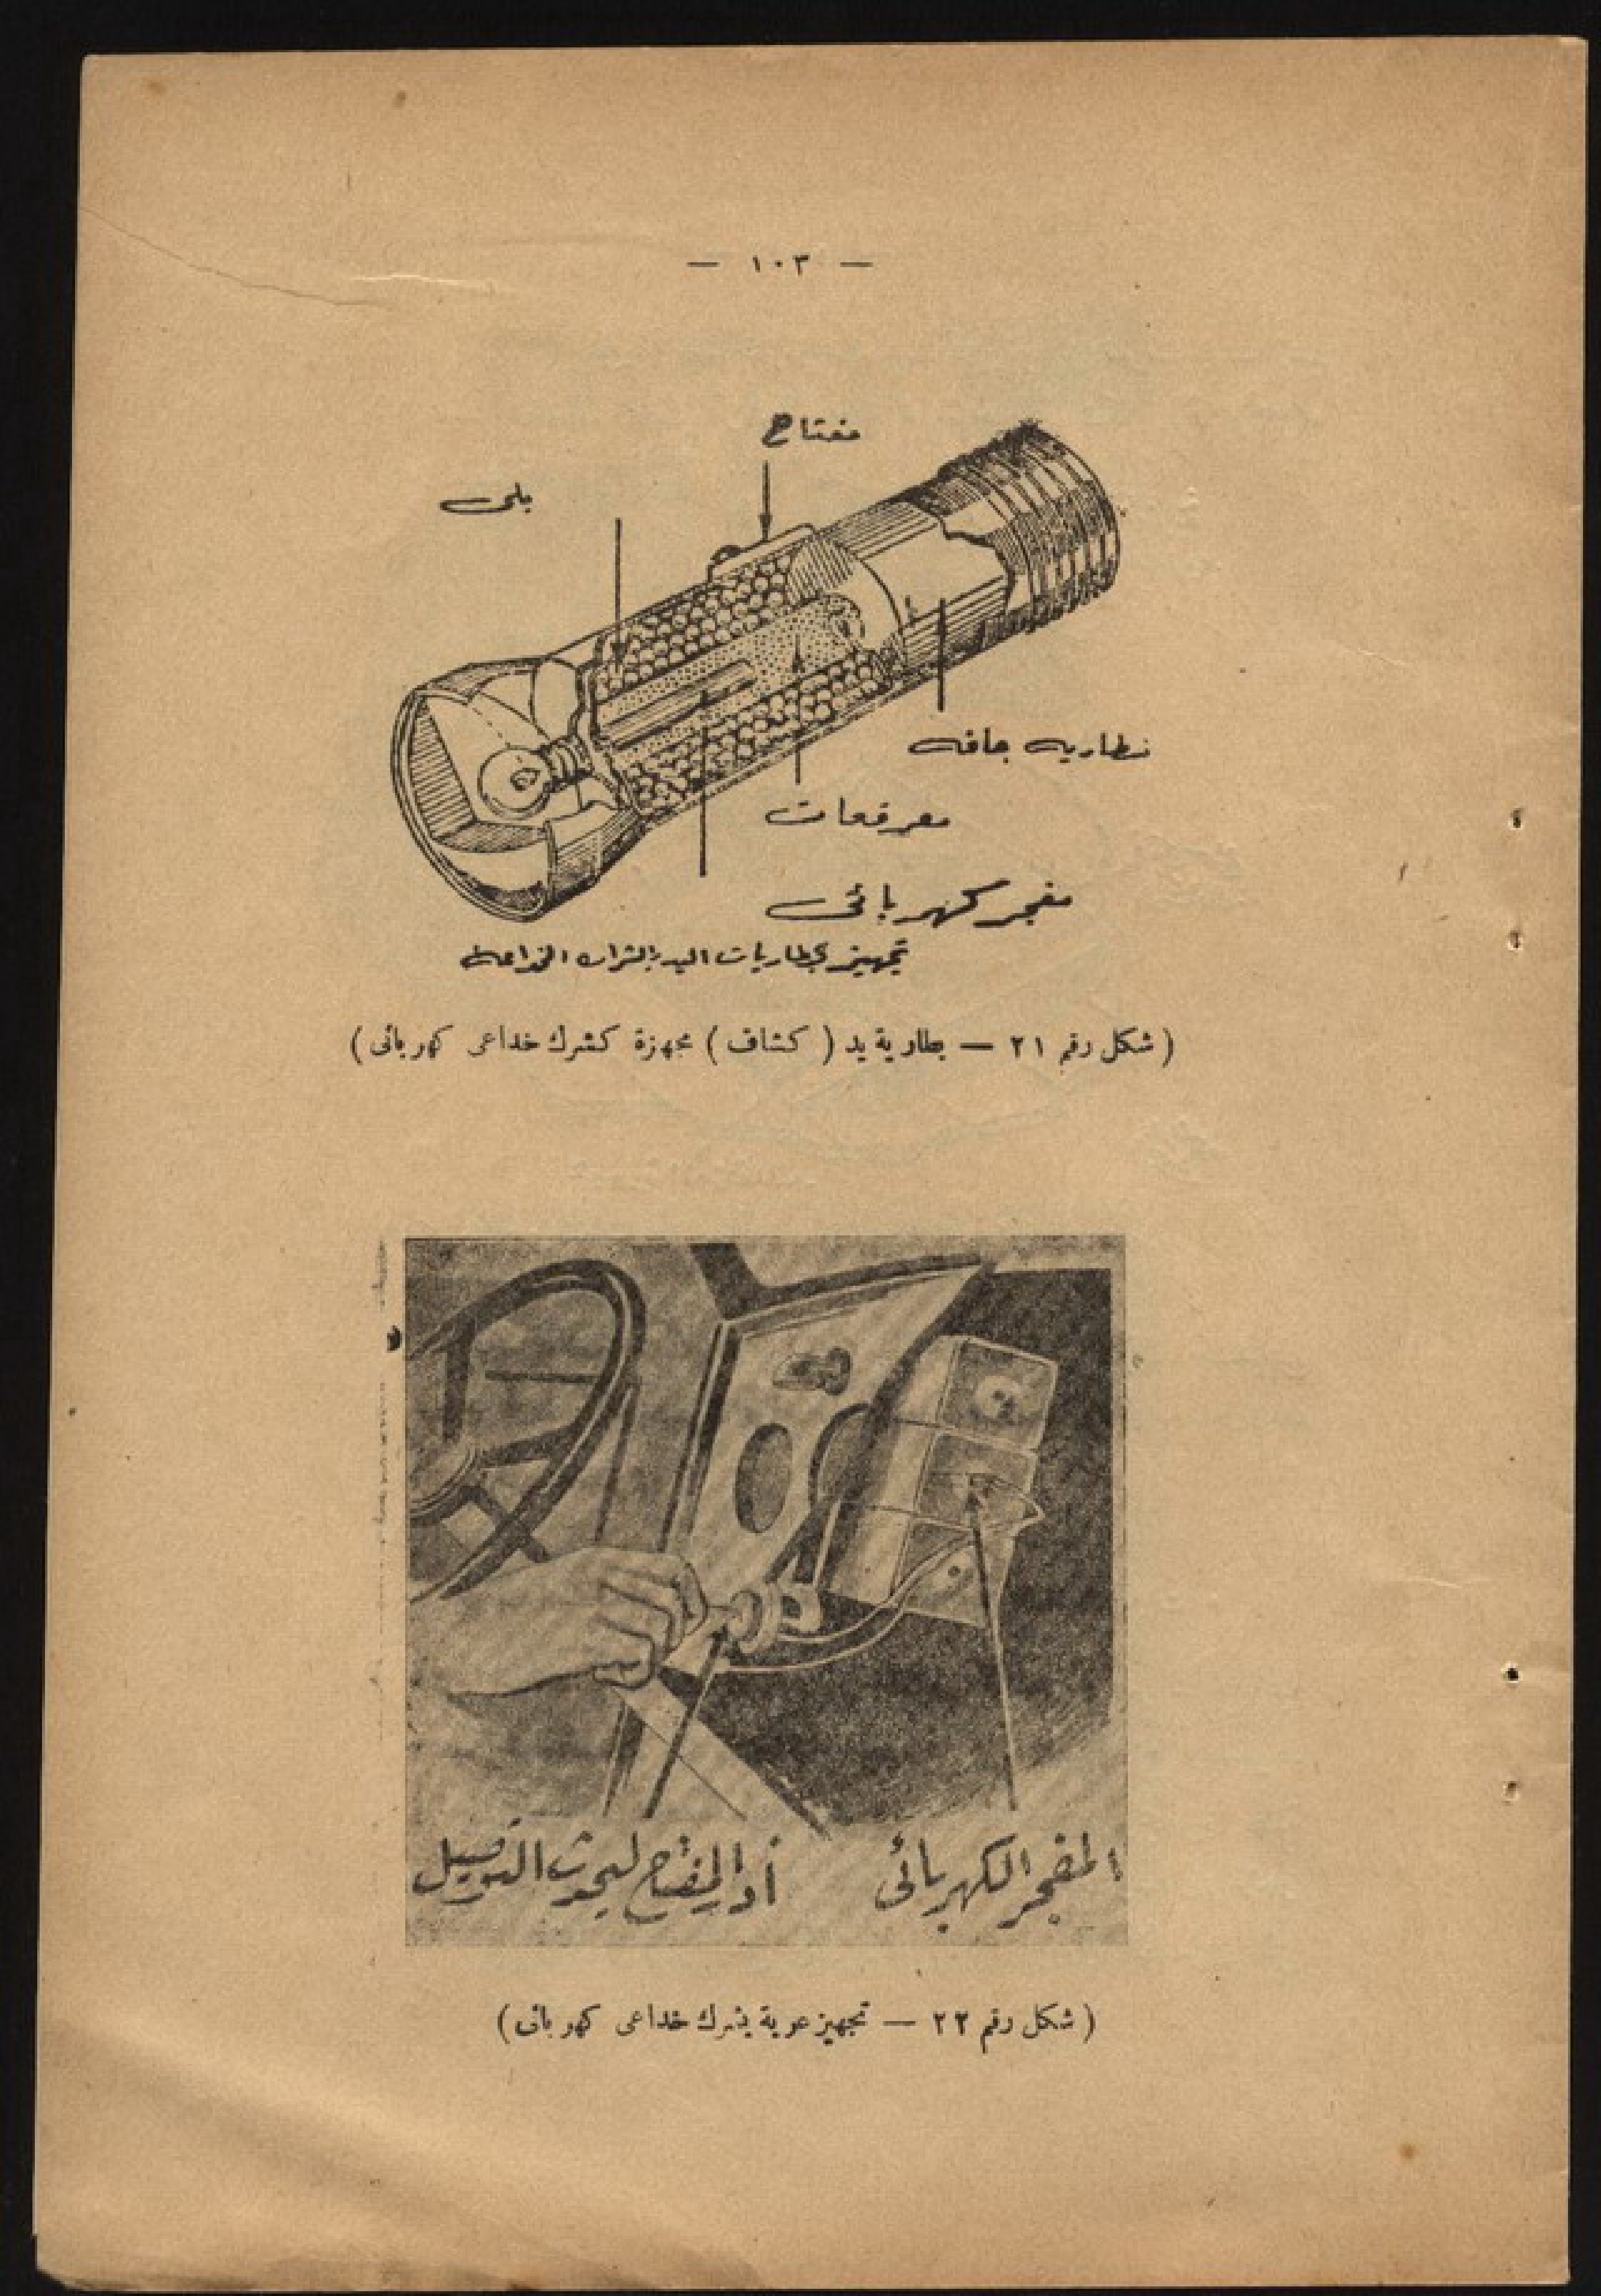 — ١٠٣ —
مفتاح
بلى
بطاريه جافه
مفرقعات
مفجر كهربائى
تجهيز بطاريات اليد بالشراك الخداعة
( شكل رقم ٢١ — بطارية يد ( كشاف ) مجهزة كشرك خداعى كهربائى )
المفجر الكهربائى
أدر المفتاح ليحدث التوصيل
( شكل رقم ٢٢ — تجهيز عربة بشرك خداعى كهربائى )